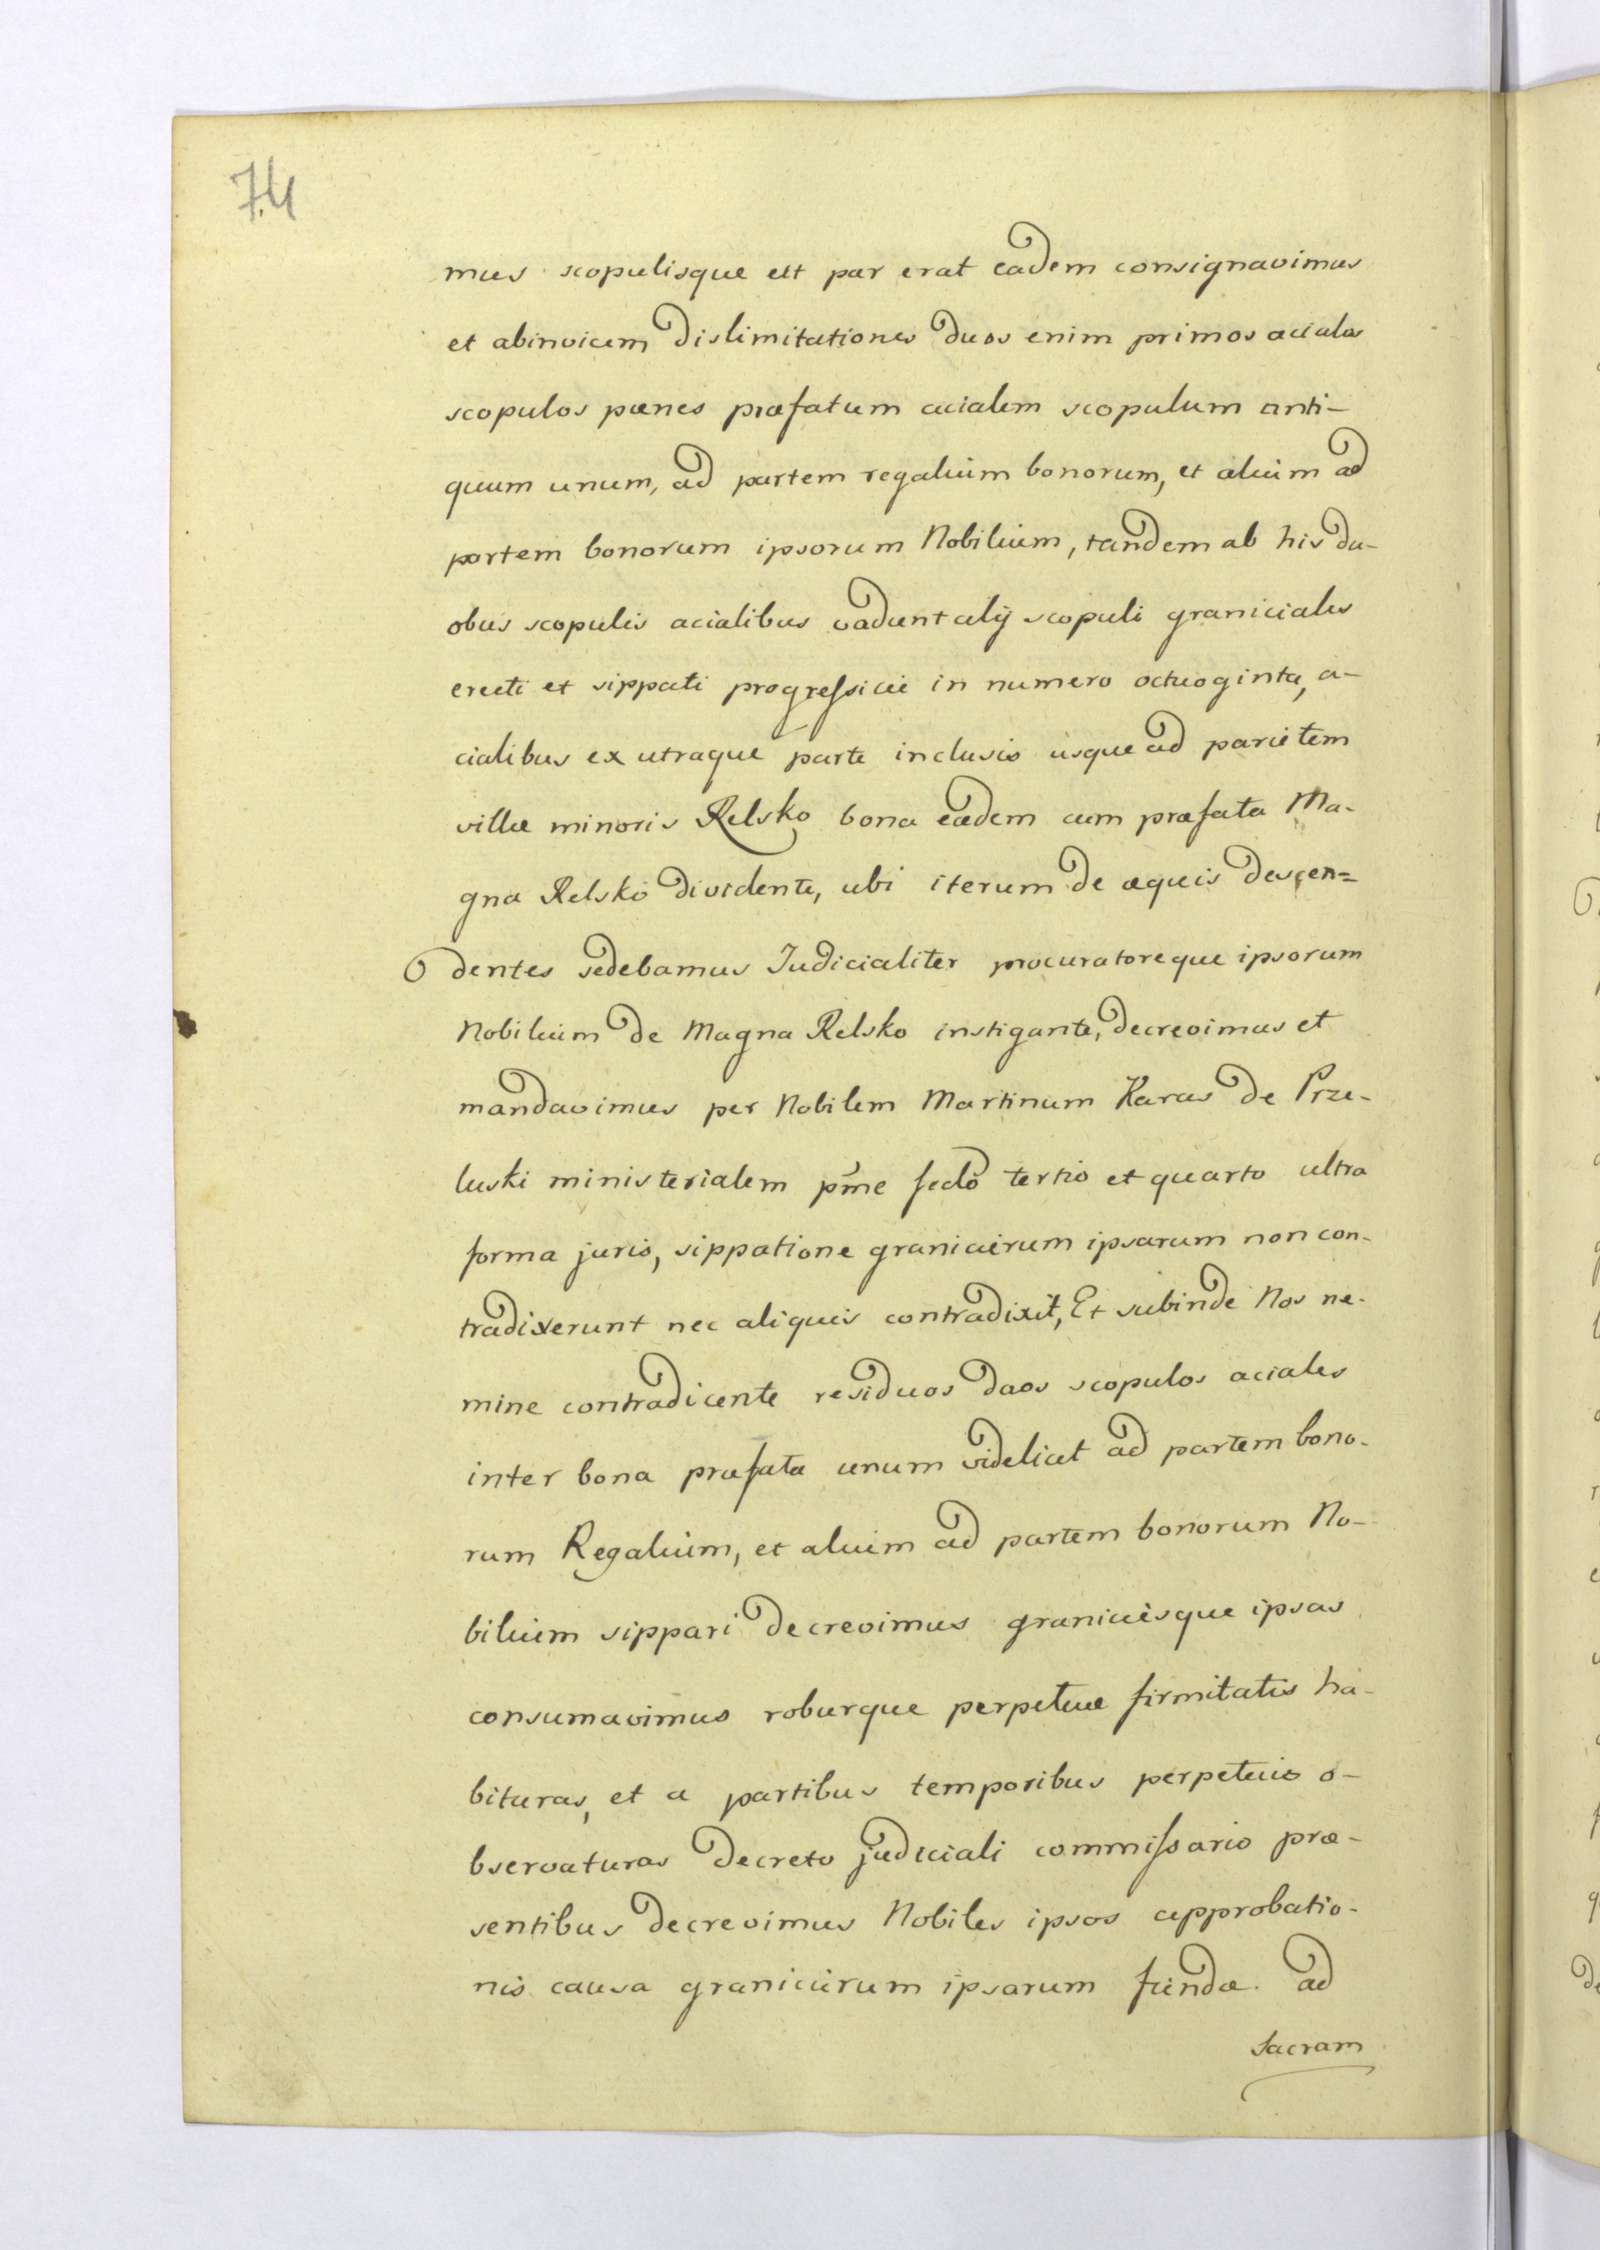 74
mus scopulisque ut par erat eadem consignavimus
et abinvicem dislimitationes duos enim primos aciales
scopulos pænes præfatum acialem scopulum anti-
quum unum, ad partem regalium bonorum, et alium ad
partem bonorum ipsorum Nobilium, tandem ab his du-
obus scopulis acialibus vadunt alij scopuli graniciales
erecti et sippati progressive in numero octuoginta, a-
cialibus ex utraque parte inclusis usque ad parietem
villæ minoris Relsko bona eædem cum præfata Ma-
gna Relsko dividente, ubi iterum de æquis descen=
dentes sedebamus Judicialiter procuratoreque ipsorum
Nobilium de Magna Relsko instigante, decrevimus et
mandavimus per Nobilem Martinum Karas de Prze-
luski ministerialem pme secdo tertio et quarto ultra
forma juris, sippatione granicierum ipsarum non con-
tradixerunt nec aliquis contradixit, Et subinde Nos ne-
mine contradicente residuos duos scopulos aciales
inter bona præfata unum videlicet ad partem bono-
rum Regalium, et alium ad partem bonorum No-
bilium sippari decrevimus graniciesque ipsas
consumavimus roburque perpetuæ firmitatis ha-
bituras, et a partibus temporibus perpetuis o-
bservaturas decreto judiciali commissario præ-
sentibus decrevimus Nobiles ipsos approbatio-
nis causa granicierum ipsarum fiendæ ad
Sacram